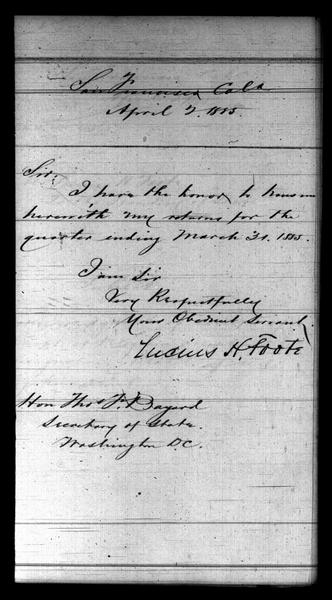 San Francisco Cala
April 7. 1885.
Sir:
I have the honor to transm
herewith my returns for the
quarter ending March 31. 1885.
I am Sir
Very Respectfully
Your Obedient Servant
Lucius H. Foote
Hon Thos F. Bayard
Secretary of State.
Washington D.C.